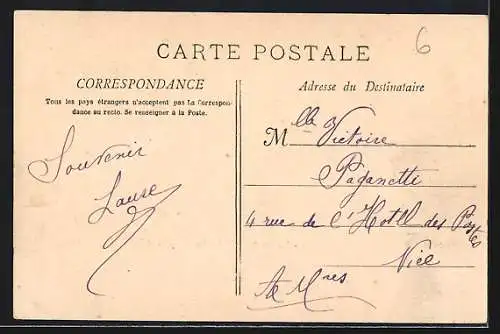 6
CARTE POSTALE
CORRESPONDANCE
Tous les pays étrangers n'acceptent pas la Correspon-
dance au recto. Se renseigner à la Poste.
Souvenir
Adresse du Destinataire
Mlle Victoire
Paganetti
4 rue de l'Hotel des Postes
Nice
Al Mres